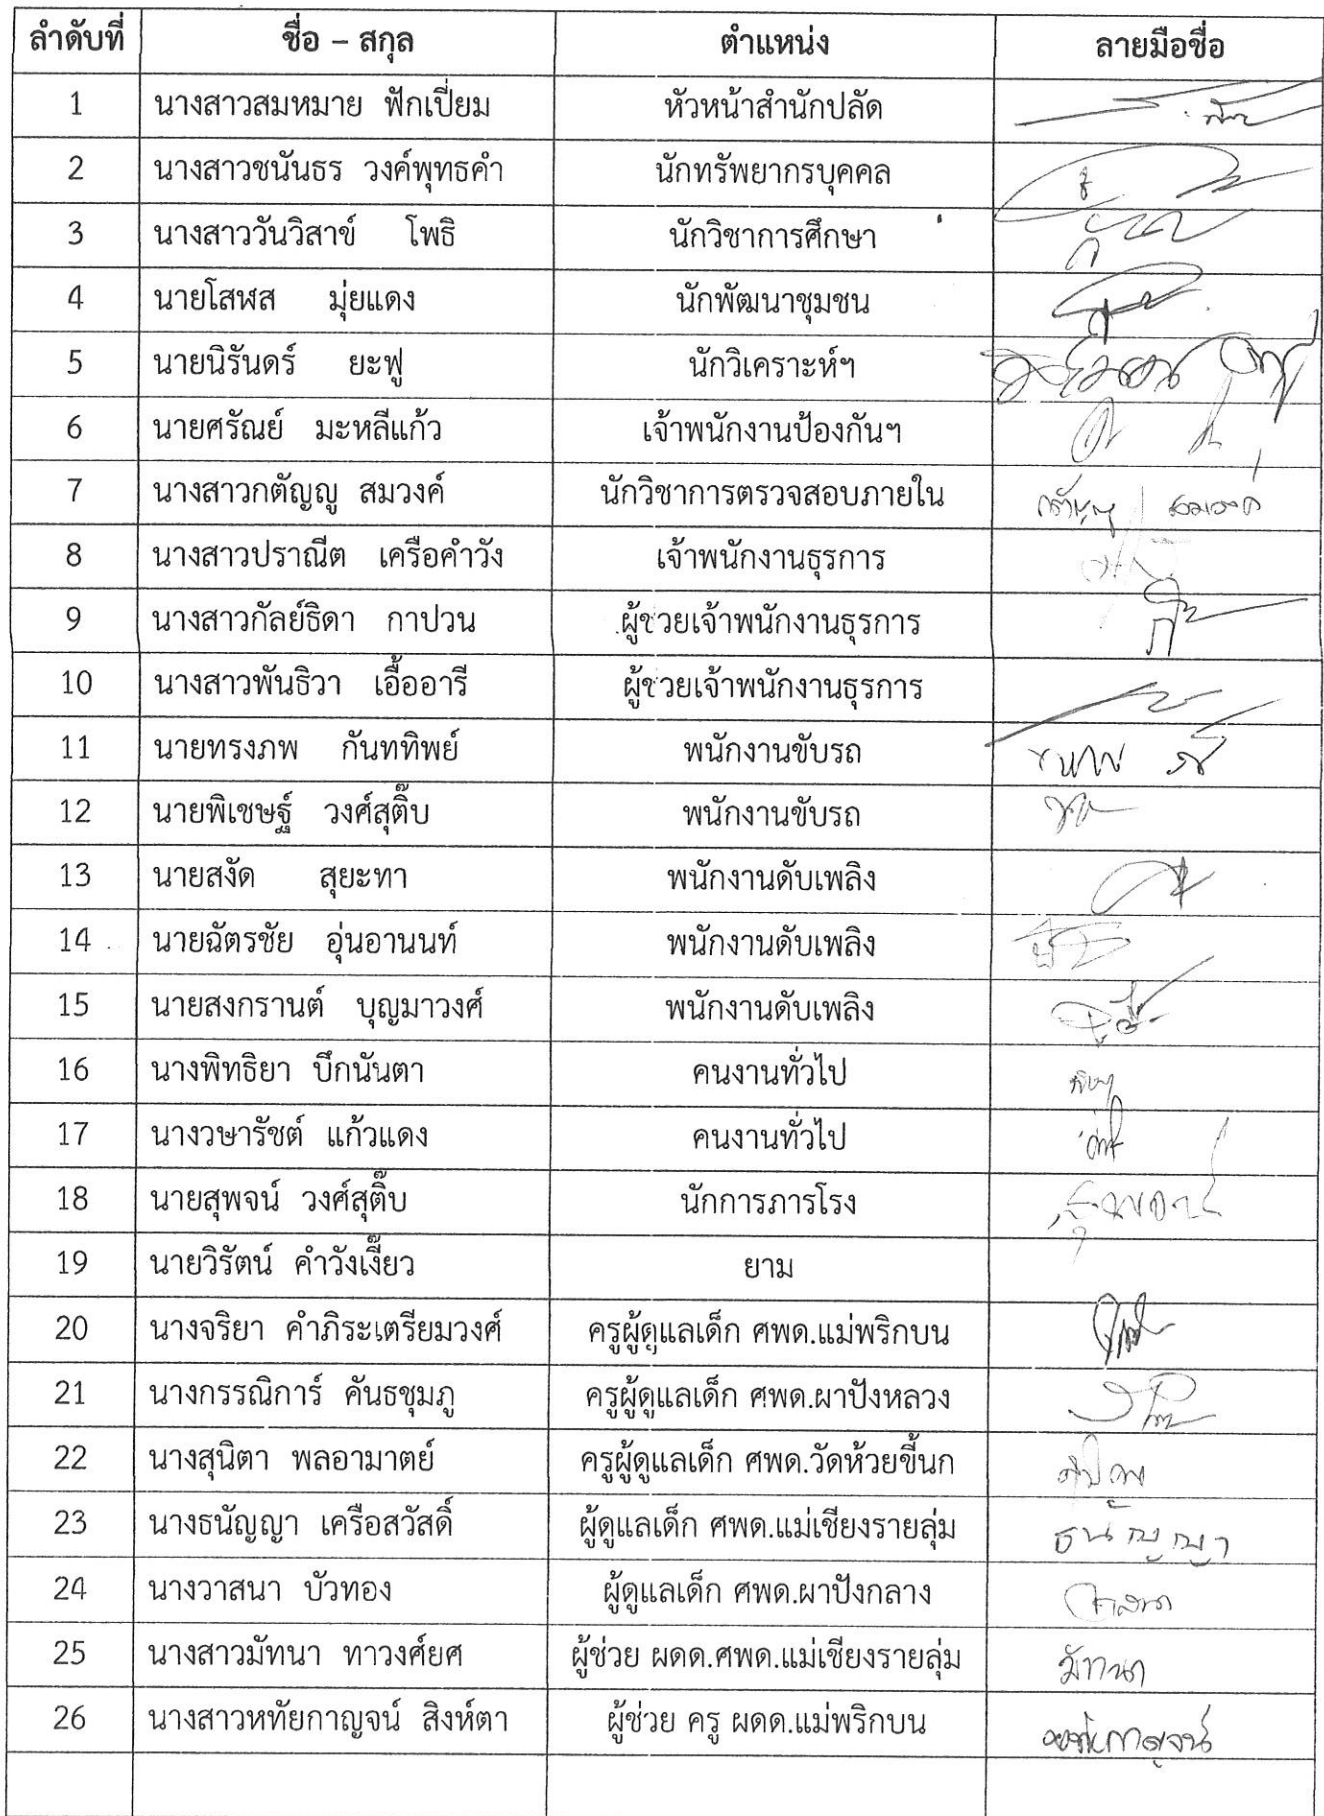 ลำดับที่ ชื่อ – สกุล ตำแหน่ง ลายมือชื่อ
1 นางสาวสมหมาย ฟักเปี่ยม หัวหน้าสำนักปลัด
2 นางสาวชนันธร วงค์พุทธคำ นักทรัพยากรบุคคล
3 นางสาววันวิสาข์ โพธิ นักวิชาการศึกษา
4 นายโสฬส มุ่ยแดง นักพัฒนาชุมชน
5 นายนิรันดร์ ยะฟู นักวิเคราะห์ฯ
6 นายศรัณย์ มะหลีแก้ว เจ้าพนักงานป้องกันฯ
7 นางสาวกตัญญู สมวงค์ นักวิชาการตรวจสอบภายใน กตัญญู สมวงค์
8 นางสาวปราณีต เครือคำวัง เจ้าพนักงานธุรการ
9 นางสาวกัลย์ธิดา กาปวน ผู้ช่วยเจ้าพนักงานธุรการ
10 นางสาวพันธิวา เอื้ออารี ผู้ช่วยเจ้าพนักงานธุรการ
11 นายทรงภพ กันททิพย์ พนักงานขับรถ
12 นายพิเชษฐ์ วงศ์สุติ๊บ พนักงานขับรถ
13 นายสงัด สุยะทา พนักงานดับเพลิง
14 นายฉัตรชัย อุ่นอานนท์ พนักงานดับเพลิง
15 นายสงกรานต์ บุญมาวงศ์ พนักงานดับเพลิง
16 นางพิทธิยา บึกนันตา คนงานทั่วไป
17 นางวษารัชต์ แก้วแดง คนงานทั่วไป
18 นายสุพจน์ วงศ์สุติ๊บ นักการภารโรง
19 นายวิรัตน์ คำวังเงี๊ยว ยาม
20 นางจริยา คำภิระเตรียมวงศ์ ครูผู้ดูแลเด็ก ศพด.แม่พริกบน
21 นางกรรณิการ์ คันธชุมภู ครูผู้ดูแลเด็ก ศพด.ผาปังหลวง
22 นางสุนิตา พลอามาตย์ ครูผู้ดูแลเด็ก ศพด.วัดห้วยขี้นก
23 นางธนัญญา เครือสวัสดิ์ ผู้ดูแลเด็ก ศพด.แม่เชียงรายลุ่ม ธนัญญา
24 นางวาสนา บัวทอง ผู้ดูแลเด็ก ศพด.ผาปังกลาง วาสนา
25 นางสาวมัทนา ทาวงศ์ยศ ผู้ช่วย ผดด.ศพด.แม่เชียงรายลุ่ม มัทนา
26 นางสาวหทัยกาญจน์ สิงห์ตา ผู้ช่วย ครู ผดด.แม่พริกบน หทัยกาญจน์